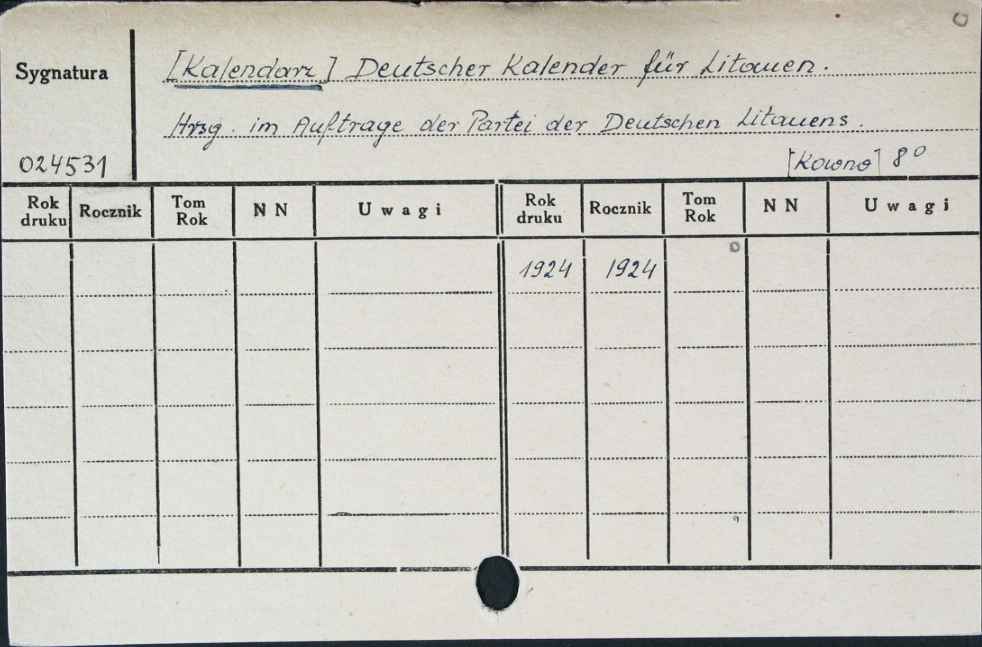 Sygnatura
[Kalendarz] Deutscher Kalender für Litauen.
Hrsg. im Auftrage der Partei der Deutschen Litauens.
024531
[Kowno] 8°
Rok druku Rocznik Tom Rok N N Uwagi Rok druku Rocznik Tom Rok N N Uwagi
1924 1924